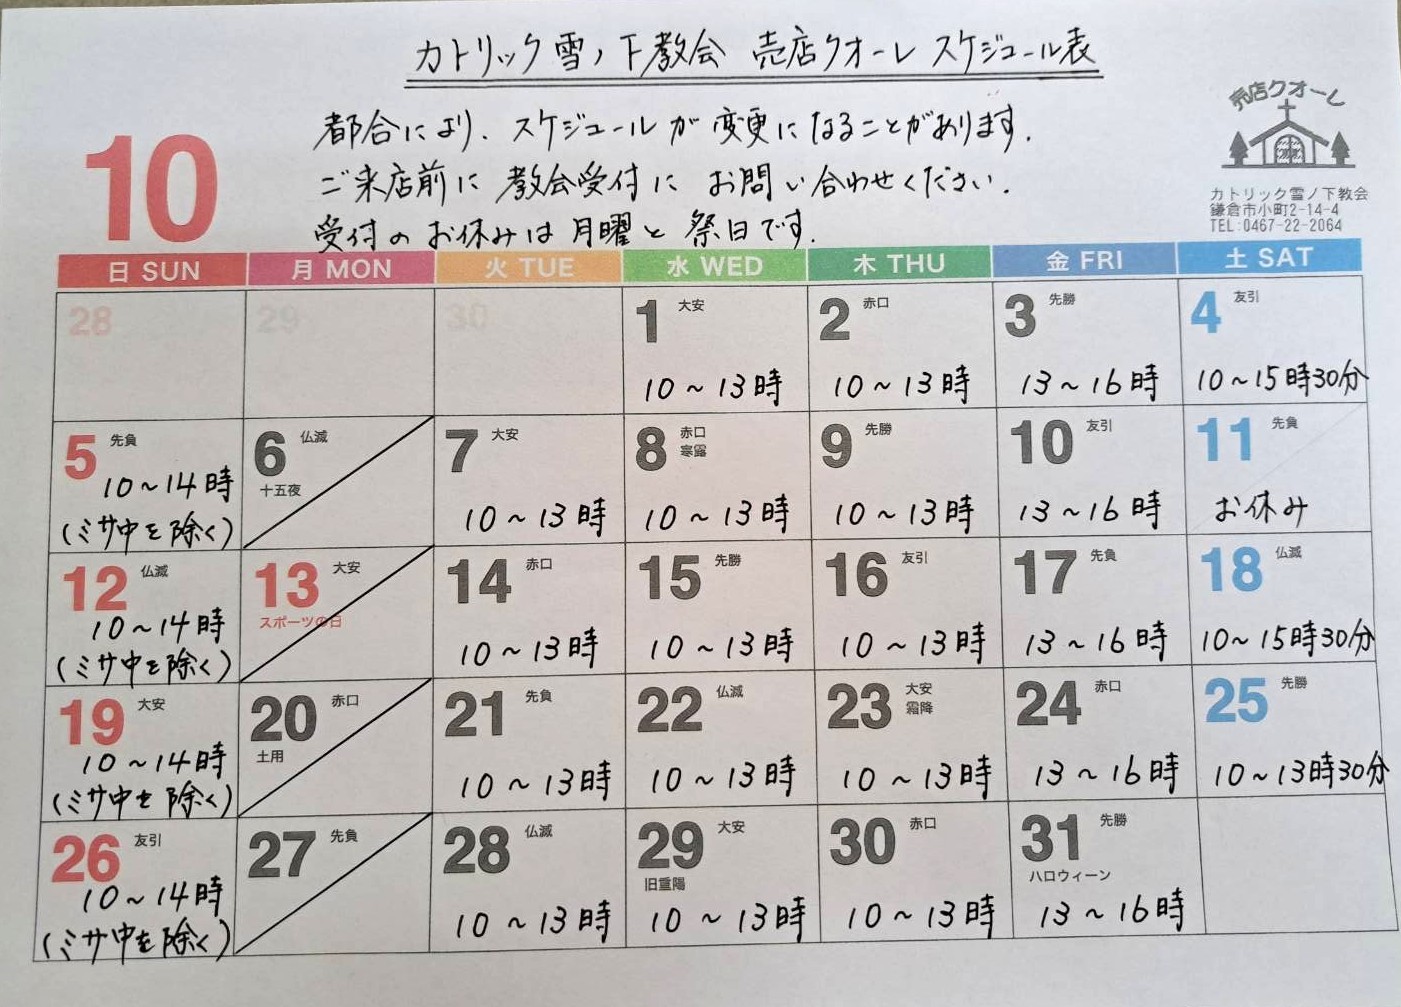 カトリック雪ノ下教会 売店クオーレ スケジュール表
都合により、スケジュールが変更になることがあります.
ご来店前に 教会受付に お問い合わせください.
受付のお休みは 月曜と 祭日です.
売店クオーレ
カトリック雪ノ下教会
鎌倉市小町2-14-4
TEL:0467-22-2064
10
日 SUN 月 MON 火 TUE 水 WED 木 THU 金 FRI 土 SAT
28 29 30 1 大安 2 赤口 3 先勝 4 友引
10~13時 10~13時 13~16時 10~15時30分
5 先負 6 仏滅 7 大安 8 赤口 9 先勝 10 友引 11 先負
十五夜 寒露
10~14時 10~13時 10~13時 10~13時 13~16時 お休み
(ミサ中を除く)
12 仏滅 13 大安 14 赤口 15 先勝 16 友引 17 先負 18 仏滅
スポーツの日
10~14時 10~13時 10~13時 10~13時 13~16時 10~15時30分
(ミサ中を除く)
19 大安 20 赤口 21 先負 22 仏滅 23 大安 24 赤口 25 先勝
土用 霜降
10~14時 10~13時 10~13時 10~13時 13~16時 10~13時30分
(ミサ中を除く)
26 友引 27 先負 28 仏滅 29 大安 30 赤口 31 先勝
旧重陽 ハロウィーン
10~14時 10~13時 10~13時 10~13時 13~16時
(ミサ中を除く)